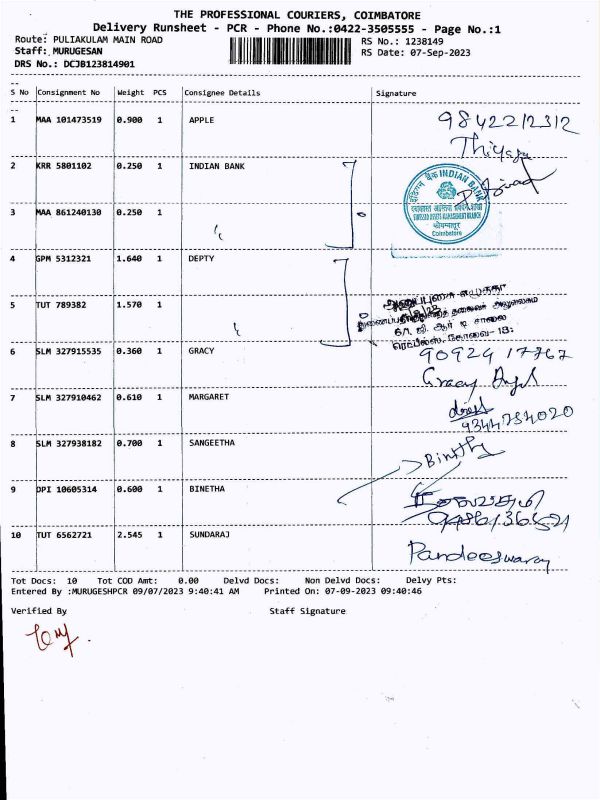 THE PROFESSIONAL COURIERS, COIMBATORE
Delivery Runsheet - PCR - Phone No.:0422-3505555 - Page No.:1
Route: PULIAKULAM MAIN ROAD RS No.: 1238149
Staff: MURUGESAN RS Date: 07-Sep-2023
DRS No.: DCJB123814901
S No Consignment No Weight PCS Consignee Details Signature
1 MAA 101473519 0.900 1 APPLE 9842212312
Thiyagu
2 KRR 5801102 0.250 1 INDIAN BANK
इंडियन बैंक INDIAN BANK
STRESSED ASSETS MANAGEMENT BRANCH
कोयम्बत्तूर
Coimbatore
3 MAA 861240130 0.250 1 "
4 GPM 5312321 1.640 1 DEPTY
5 TUT 789382 1.570 1 "
67, ஜி. ஆர் டி சாலை
கோவை-18:
6 SLM 327915535 0.360 1 GRACY 90924 17767
Gracy
7 SLM 327910462 0.610 1 MARGARET
9344734020
8 SLM 327938182 0.700 1 SANGEETHA
Binthy
9 DPI 10605314 0.600 1 BINETHA
10 TUT 6562721 2.545 1 SUNDARAJ
Pandeeswaran
Tot Docs: 10 Tot COD Amt: 0.00 Delvd Docs: Non Delvd Docs: Delvy Pts:
Entered By :MURUGESHPCR 09/07/2023 9:40:41 AM Printed On: 07-09-2023 09:40:46
Verified By Staff Signature